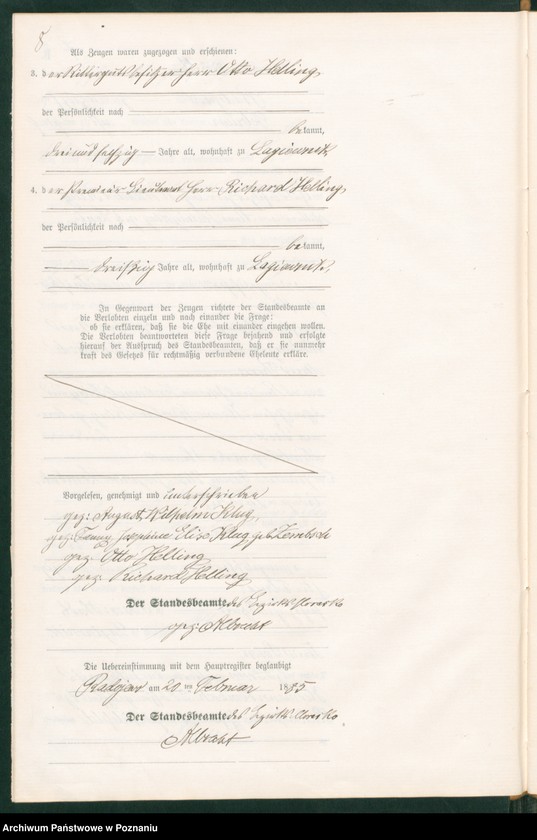 8
Als Zeugen waren zugezogen und erschienen:
3. der Rittergutsbesitzer Herr Otto Helling
der Persönlichkeit nach
bekannt,
dreiundsechzig Jahre alt, wohnhaft zu Lagiewnik
4. der Premier-Lieutenant Herr Richard Helling,
der Persönlichkeit nach
bekannt,
dreißig Jahre alt, wohnhaft zu Lagiewnik.
In Gegenwart der Zeugen richtete der Standesbeamte an
die Verlobten einzeln und nach einander die Frage:
ob sie erklären, daß sie die Ehe mit einander eingehen wollen.
Die Verlobten beantworteten diese Frage bejahend und erfolgte
hierauf der Ausspruch des Standesbeamten, daß er sie nunmehr
kraft des Gesetzes für rechtmäßig verbundene Eheleute erkläre.
Vorgelesen, genehmigt und unterschrieben
gez: August Wilhelm Klug,
gez: Fanny Josephine Elise Klug geb. Zembsch
gez. Otto Helling
gez. Richard Helling
Der Standesbeamte des Bezirks
gez: Albrecht
Die Uebereinstimmung mit dem Hauptregister beglaubigt
Radojewo am 20. ten Februar 1885
Der Standesbeamte des Bezirks
Albrecht
Archiwum Państwowe w Poznaniu